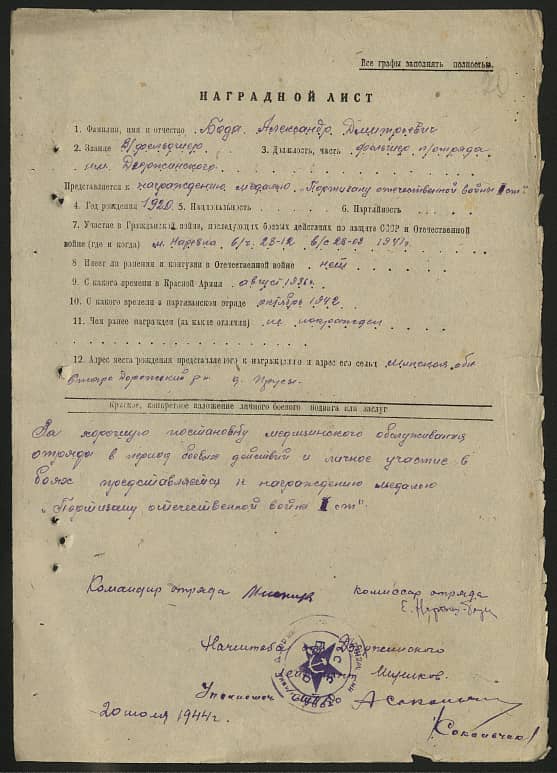 Все графы заполнять полностью.
20
НАГРАДНОЙ ЛИСТ
1. Фамилия, имя и отчество Бода Александр Дмитриевич
2. Звание В/фельдшер 3. Должность, часть фельшер п/отряда
им. Дзержинского
Представляется к награждению медалью „Партизану отечественной войны I ст"
4. Год рождения 1920 5. Национальность 6. Партийность
7. Участие в Гражданской войне, последующих боевых действиях по защите СССР и Отечественной
войне (где и когда) м. Наревка 1941г.
8. Имеет ли ранения и контузии в Отечественной войне нет
9. С какого времени в Красной Армии август
10. С какого времени в партизанском отряде октябрь 1942
11. Чем ранее награжден (за какие отличия) не награжден
12. Адрес места рождения представляемого к награждению и адрес его семьи Минская обл
Старо Дорожский р-н д. Прусы
Краткое, конкретное изложение личного боевого подвига или заслуг
За хорошую постановку медицинского обслуживания
отряда в период боевых действий и личное участие в
боях представляется к награждению медалью
„Партизану отечественной войны I ст"
Командир отряда комиссар отряда
Начштаба Дзержинского
20 июля 1944 г.